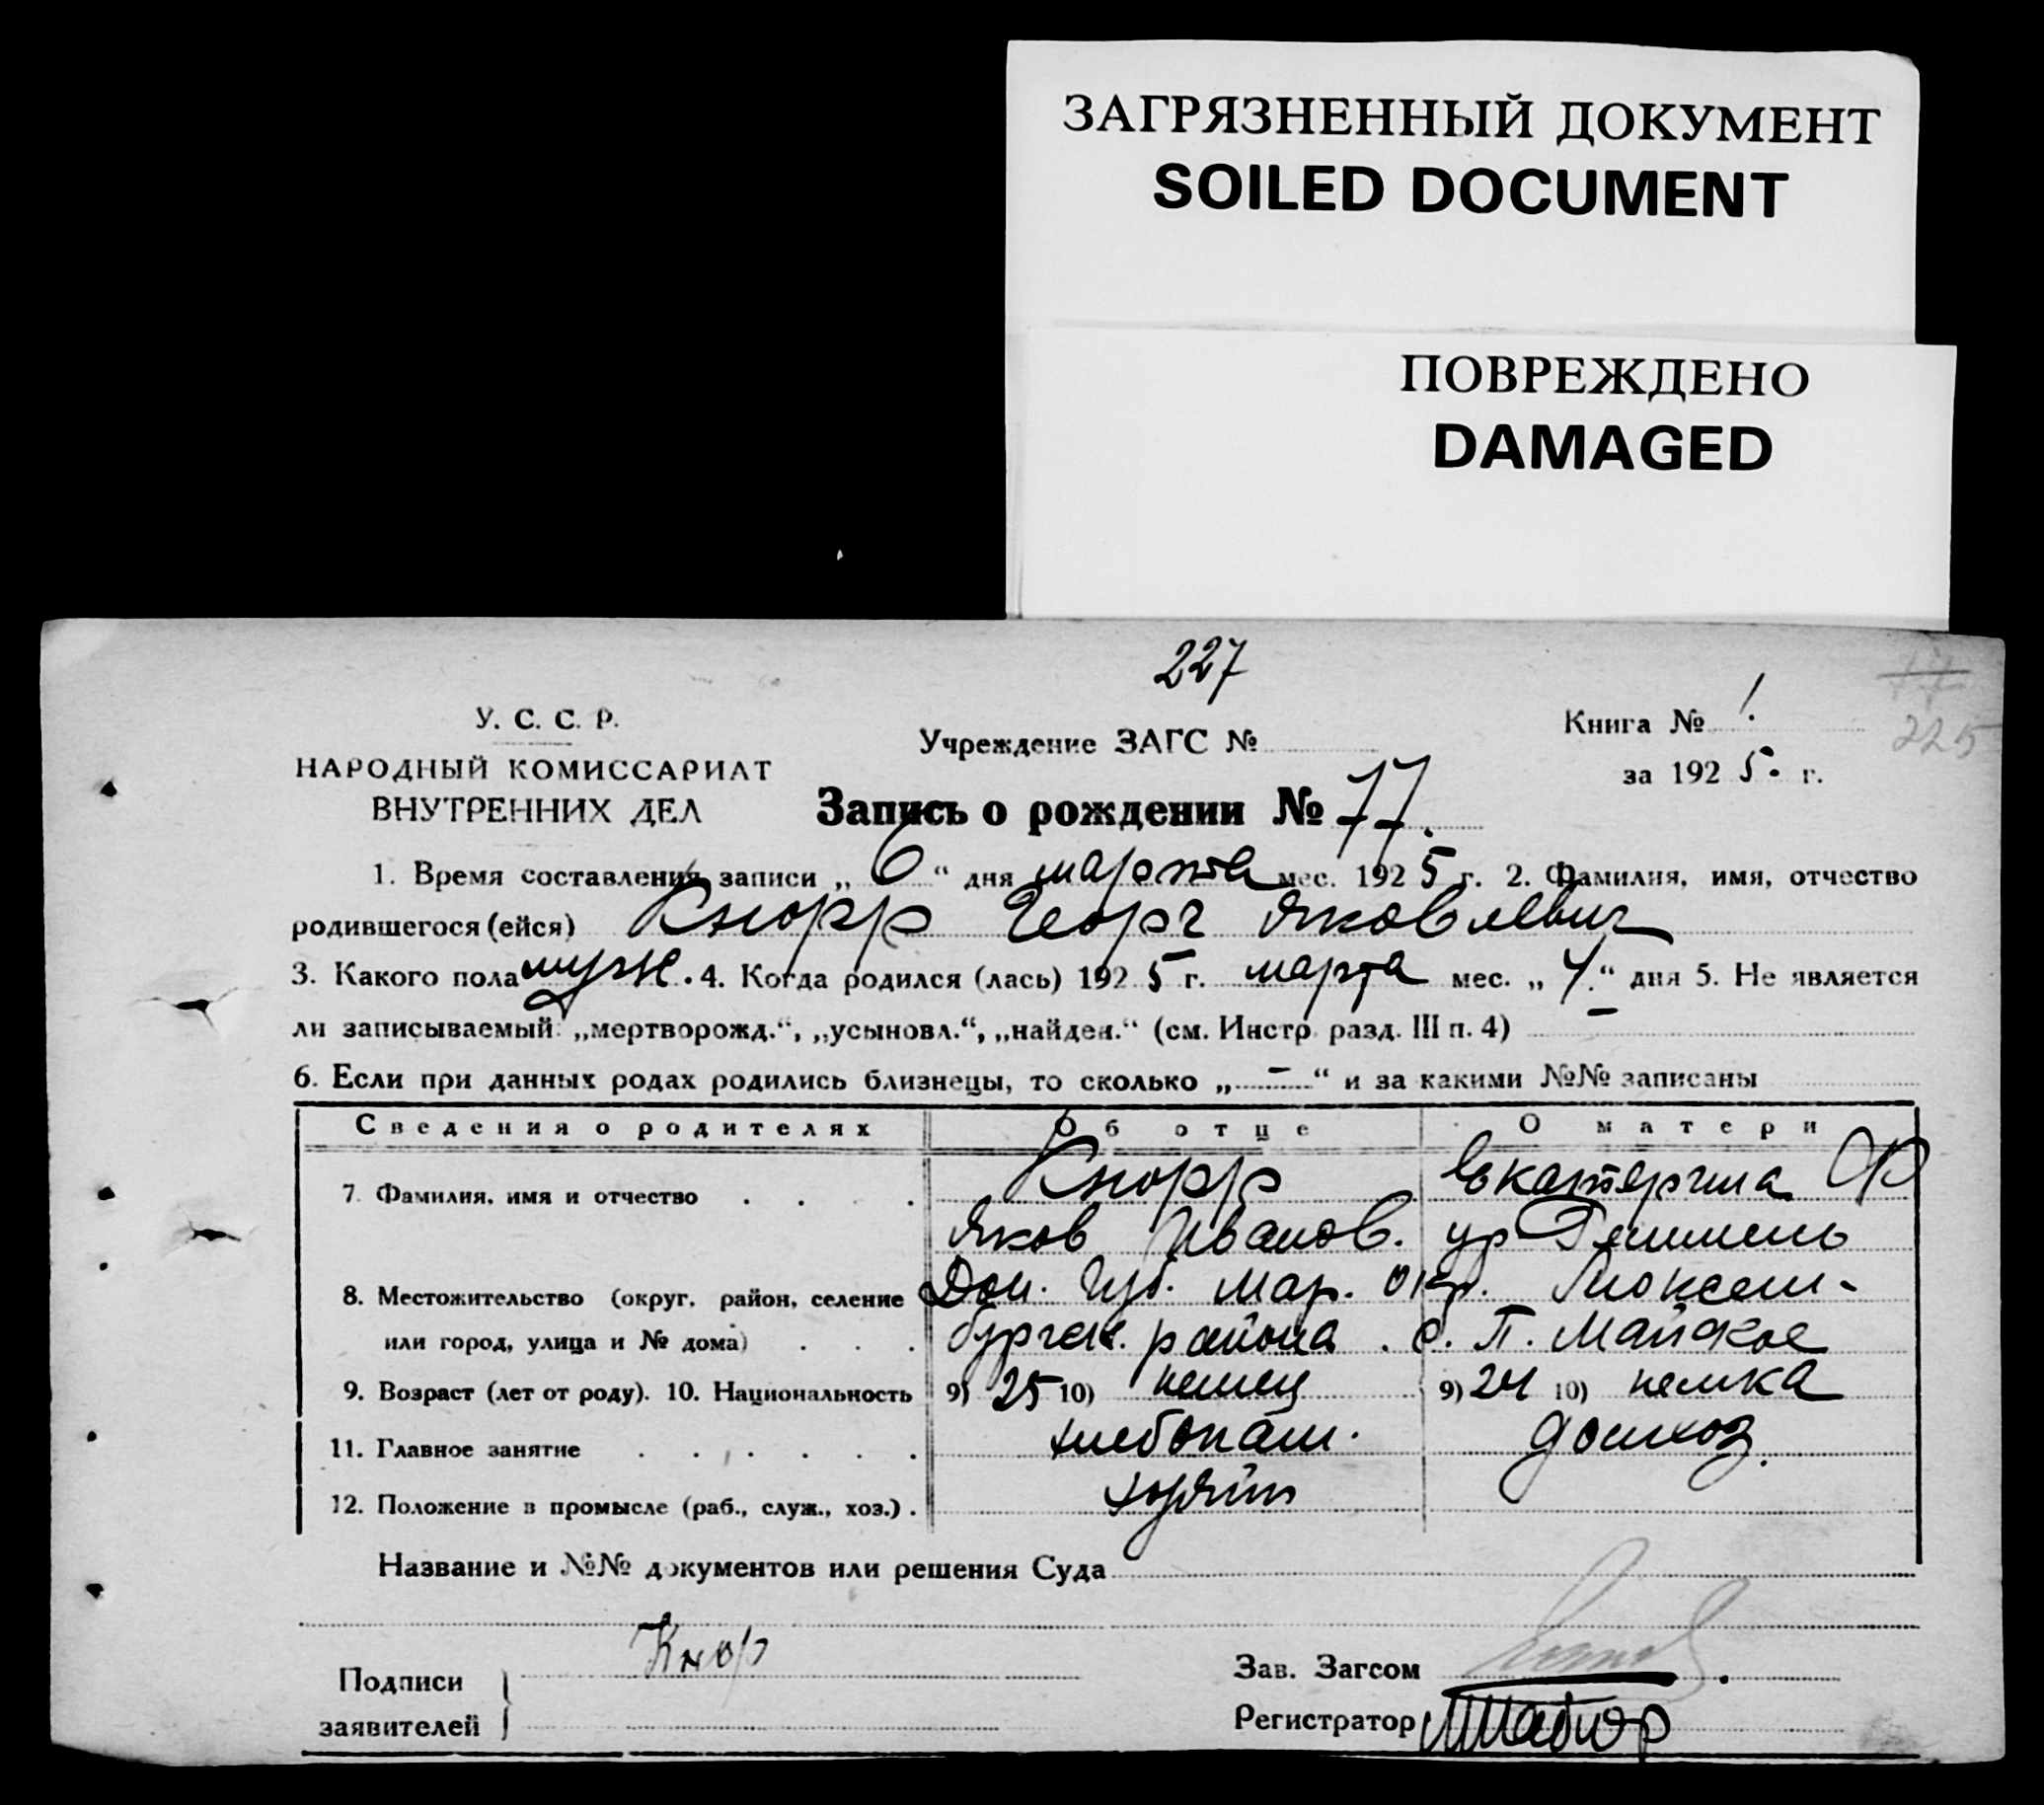 ЗАГРЯЗНЕННЫЙ ДОКУМЕНТ
SOILED DOCUMENT
ПОВРЕЖДЕНО
DAMAGED
227
77
225
У. С. С. Р.
НАРОДНЫЙ КОМИССАРИАТ
ВНУТРЕННИХ ДЕЛ
Учреждение ЗАГС №
Книга № 1.
за 1925. г.
Запись о рождении № 77.
1. Время составления записи „6“ дня марта мес. 1925 г. 2. Фамилия, имя, отчество
родившегося (ейся) Кнорр Георг Яковлевич
3. Какого пола муж. 4. Когда родился (лась) 1925 г. марта мес. „4.“ дня 5. Не является
ли записываемый: „мертворожд.“, „усыновл.“, „найден.“ (см. Инстр. разд. III п. 4) —
6. Если при данных родах родились близнецы, то сколько „—“ и за какими №№ записаны
Сведения о родителях Об отце О матери
7. Фамилия, имя и отчество . . . . Кнорр Екатерина Ф
Яков Иванов. ур
8. Местожительство (округ, район, селение Дон. Губ. Мар. окр. Люксем-
или город, улица и № дома) . . . бургск. района. с. П. Майское
9. Возраст (лет от роду). 10. Национальность 9) 25 10) немец 9) 24 10) немка
11. Главное занятие . . . . . . хлебопаш. домхоз.
12. Положение в промысле (раб., служ., хоз.) . хозяин
Название и №№ документов или решения Суда
Подписи
заявителей
Кнор
Зав. Загсом
Регистратор